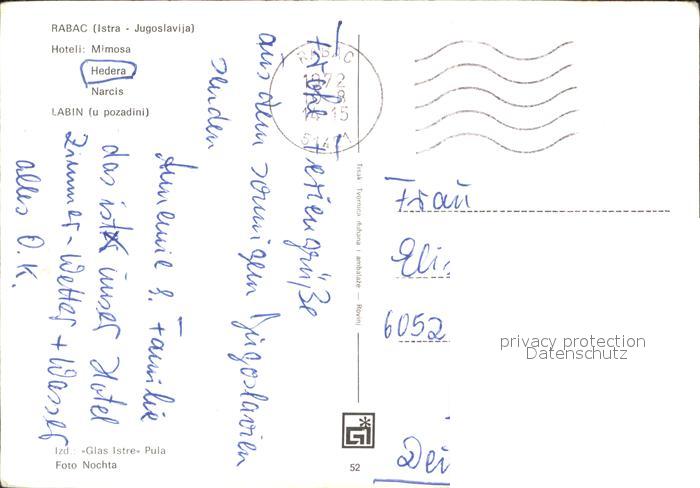 RABAC (Istra - Jugoslavija)
Hoteli: Mimosa
Hedera
Narcis
LABIN (u pozadini)
Frohe Feriengrüße
aus dem sonnigen Jugoslavien
senden
Annemie & Familie
das ist unser Hotel
Zimmer - Wetter + Wasser
alles O.K.
Izd.: »Glas Istre« Pula
Foto Nochta
Tisak: Tvornica duhana i ambalaže — Rovinj
52
RABAC
1972
15
Frau
Eli
6052
Dei
privacy protection
Datenschutz